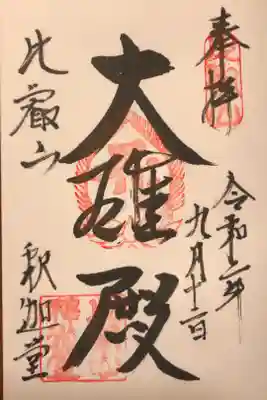 奉拝
令和二年
九月十二日
大雄殿
比叡山
釈迦堂